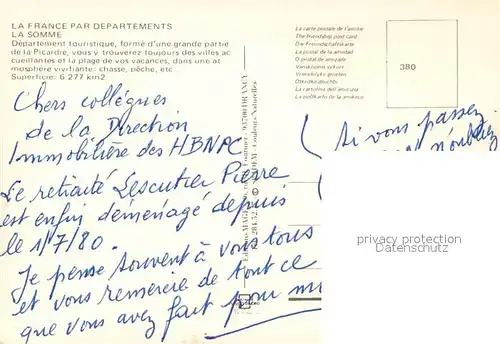 LA FRANCE PAR DEPARTEMENTS
LA SOMME
Département touristique, formé d'une grande partie
de la Picardie, vous y trouverez toujours des villes ac
cueillantes et la plage de vos vacances, dans une at
mosphère vivifiante: chasse, pêche, etc
Superficie: 6 277 km2
Chers collègues
de la Direction
Immobilière des HBNPC
Le retraité Lescutier Pierre
est enfin déménagé depuis
le 1/7/80.
Je pense souvent à vous tous
et vous remercie de tout ce
que vous avez fait pour
La carte postale de l'amitié
The friendship post card
Die Freundschaftskarte
La postal de la amistad
O postal de amizade
Vänskapens vykort
Vriendelijke groeten
La cartolina dell'amicizia
380
Si vous passez
n'oubliez
privacy protection
Datenschutz